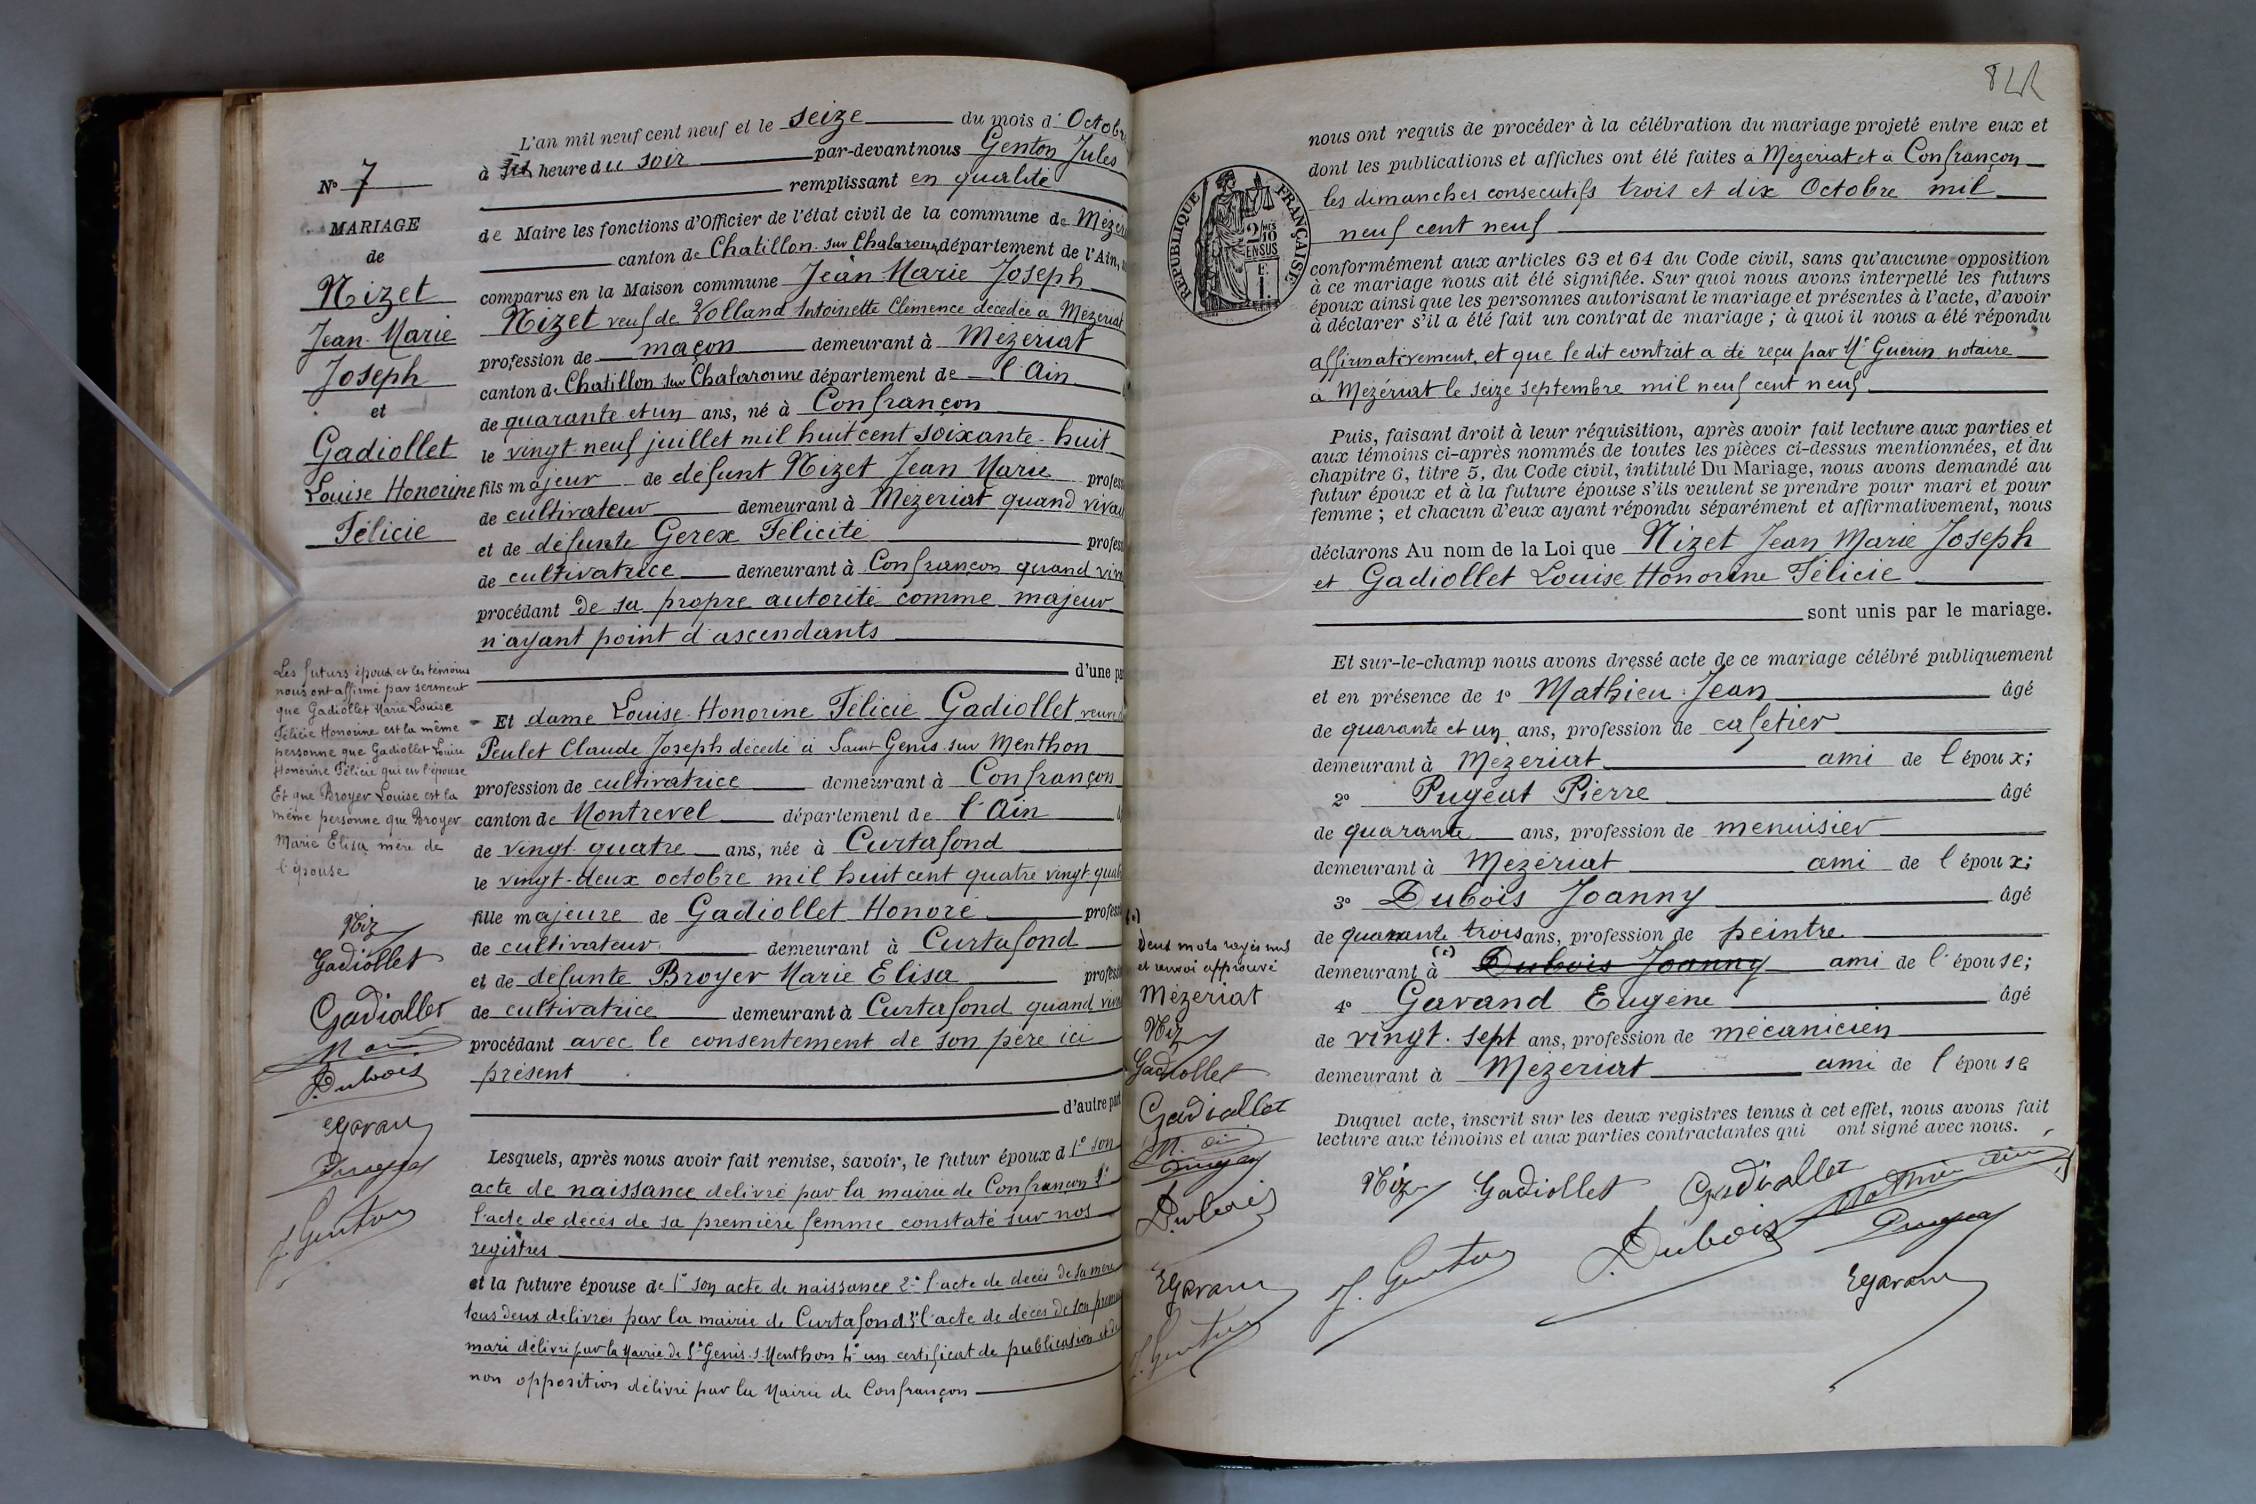 N° 7
MARIAGE
de
Nizet
Jean-Marie
Joseph
et
Gadiollet
Louise Honorine
Félicie
Les futurs époux et les témoins
nous ont affirmé par serment
que Gadiollet Marie Louise
Félicie Honorine est la même
personne que Gadiollet Louise
Honorine Félicie qui est l'épouse
Et que Broyer Louise est la
même personne que Broyer
Marie Elisa mère de
l'épouse
Niz
Gadiollet
Gadiollet
Dubois
E Garan
J. Genton
L'an mil neuf cent neuf et le seize du mois d'Octobre
à heure du soir par-devant nous Genton Jules
remplissant en qualité
de Maire les fonctions d'Officier de l'état civil de la commune de Mézér
canton de Chatillon-sur Chalaronne, département de l'Ain,
comparus en la Maison commune Jean-Marie Joseph
Nizet veuf de Volland Antoinette Clémence décédée à Mézériat
profession de maçon demeurant à Mézériat
canton de Chatillon sur Chalaronne département de l'Ain
de quarante et un ans, né à Confrançon
le vingt-neuf juillet mil huit cent soixante-huit
fils majeur de défunt Nizet Jean Marie profess
de cultivateur demeurant à Mézériat quand viva
et de défunte Gerex Félicité profess
de cultivatrice demeurant à Confrançon quand viva
procédant de sa propre autorité comme majeur
n'ayant point d'ascendants
d'une pa
Et dame Louise-Honorine Félicie Gadiollet veuve de
Peulet Claude Joseph décédé à Saint Genis sur Menthon
profession de cultivatrice demeurant à Confrançon
canton de Montrevel département de l'Ain
de vingt-quatre ans, née à Curtafond
le vingt-deux octobre mil huit cent quatre vingt quat
fille majeure de Gadiollet Honoré profess
de cultivateur demeurant à Curtafond
et de défunte Broyer Marie Elisa profess
de cultivatrice demeurant à Curtafond quand viva
procédant avec le consentement de son père ici
présent
d'autre part
Lesquels, après nous avoir fait remise, savoir, le futur époux d 1° son
acte de naissance délivré par la mairie de Confrançon 2°
l'acte de décès de sa première femme constaté sur nos
registres
et la future épouse de 1° son acte de naissance 2° l'acte de décès de sa mère
tous deux délivrés par la mairie de Curtafond 3° l'acte de décès de son premier
mari délivré par la Mairie de St Genis-s-Menthon 4° un certificat de publication et de
non opposition délivré par la Mairie de Confrançon
84
RÉPUBLIQUE FRANÇAISE
2/10
EN SUS
nous ont requis de procéder à la célébration du mariage projeté entre eux et
dont les publications et affiches ont été faites à Mézériat et à Confrançon
les dimanches consécutifs trois et dix Octobre mil
neuf cent neuf
conformément aux articles 63 et 64 du Code civil, sans qu'aucune opposition
à ce mariage nous ait été signifiée. Sur quoi nous avons interpellé les futurs
époux ainsi que les personnes autorisant le mariage et présentes à l'acte, d'avoir
à déclarer s'il a été fait un contrat de mariage ; à quoi il nous a été répondu
affirmativement, et que ledit contrat a été reçu par Me Guérin notaire
à Mézériat le seize septembre mil neuf cent neuf
Puis, faisant droit à leur réquisition, après avoir fait lecture aux parties et
aux témoins ci-après nommés de toutes les pièces ci-dessus mentionnées, et du
chapitre 6, titre 5, du Code civil, intitulé Du Mariage, nous avons demandé au
futur époux et à la future épouse s'ils veulent se prendre pour mari et pour
femme ; et chacun d'eux ayant répondu séparément et affirmativement, nous
déclarons Au nom de la Loi que Nizet Jean Marie Joseph
et Gadiollet Louise Honorine Félicie
sont unis par le mariage.
Et sur-le-champ nous avons dressé acte de ce mariage célébré publiquement
et en présence de 1° Mathieu Jean âgé
de quarante et un ans, profession de cafetier
demeurant à Mézériat ami de l'époux;
2° Pugeat Pierre âgé
de quarante ans, profession de menuisier
demeurant à Mézériat ami de l'époux;
3° Dubois Joanny âgé
de quarante trois ans, profession de peintre
demeurant à (a) Dubois Joanny ami de l'épouse;
4° Gavand Eugène âgé
de vingt-sept ans, profession de mécanicien
demeurant à Mézériat ami de l'épouse
Duquel acte, inscrit sur les deux registres tenus à cet effet, nous avons fait
lecture aux témoins et aux parties contractantes qui ont signé avec nous.
(a)
Deux mots rayés nuls
et renvoi approuvé
Mézériat
Niz
Gadiollet
Gadiollet
Dubois
E Garan
J. Genton
Niz Gadiollet Gadiollet
J. Genton Dubois
E Garan